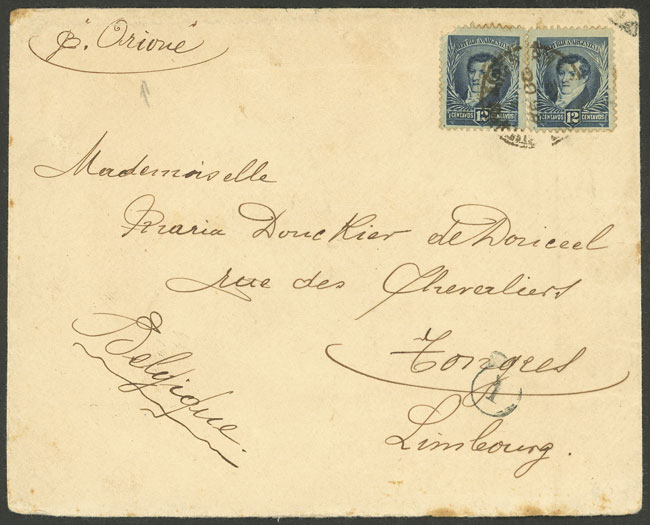 p. "Orione"
12 CENTAVOS 12 CENTAVOS
Mademoiselle
Maria Donckier de Donceel
rue des Chevaliers
Tongres
Limbourg.
Belgique.
1